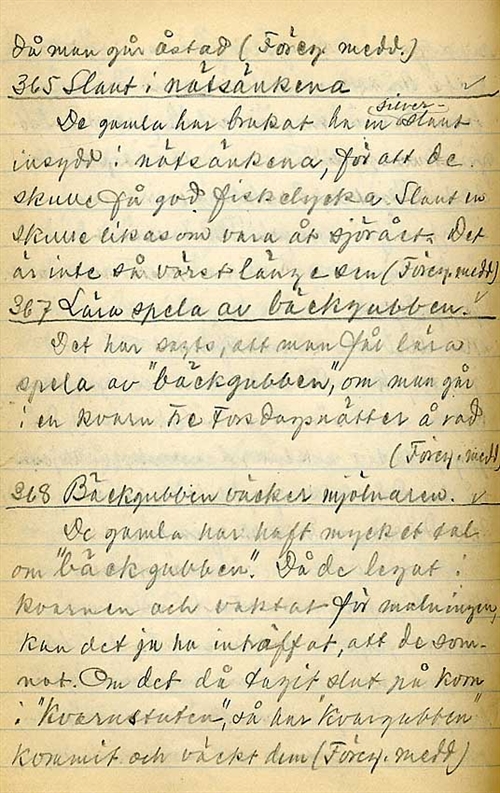 då man går åstad (Föreg. medd.)
365 Slant i nätsänkena ✓
De gamla har brukat ha en silver-slant
insydd i nätsänkena, för att de
skulle få god fiskelycka. Slanten
skulle likasom vara åt sjörået. Det
är inte så värst länge sen (Föreg. medd)
367 Lära spela av bäckgubben. ✓
Det har sagts, att man får lära
spela av "bäckgubben", om man går
i en kvarn tre Torsdagsnätter å rad
(Föreg. medd)
368 Bäckgubben väcker mjölnaren. ✓
De gamla har haft mycket tal
om "bäckgubben". Då de legat i
kvarnen och vaktat för malningen,
kan det ju ha inträffat, att de som-
nat. Om det då tagit slut på korn
i "kvarnstuten", så har "kvarngubben"
kommit och väckt dem (Föreg. medd)